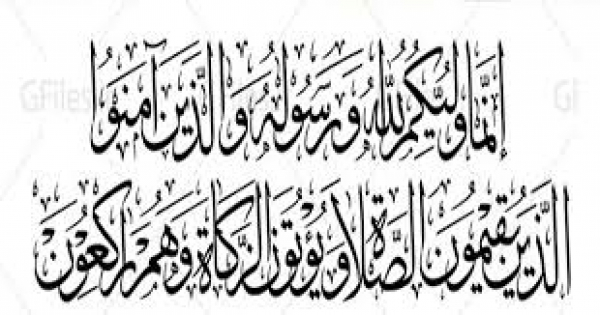 إنما وليكم الله ورسوله والذين آمنوا
الذين يقيمون الصلاة ويؤتون الزكاة وهم راكعون
GFiles